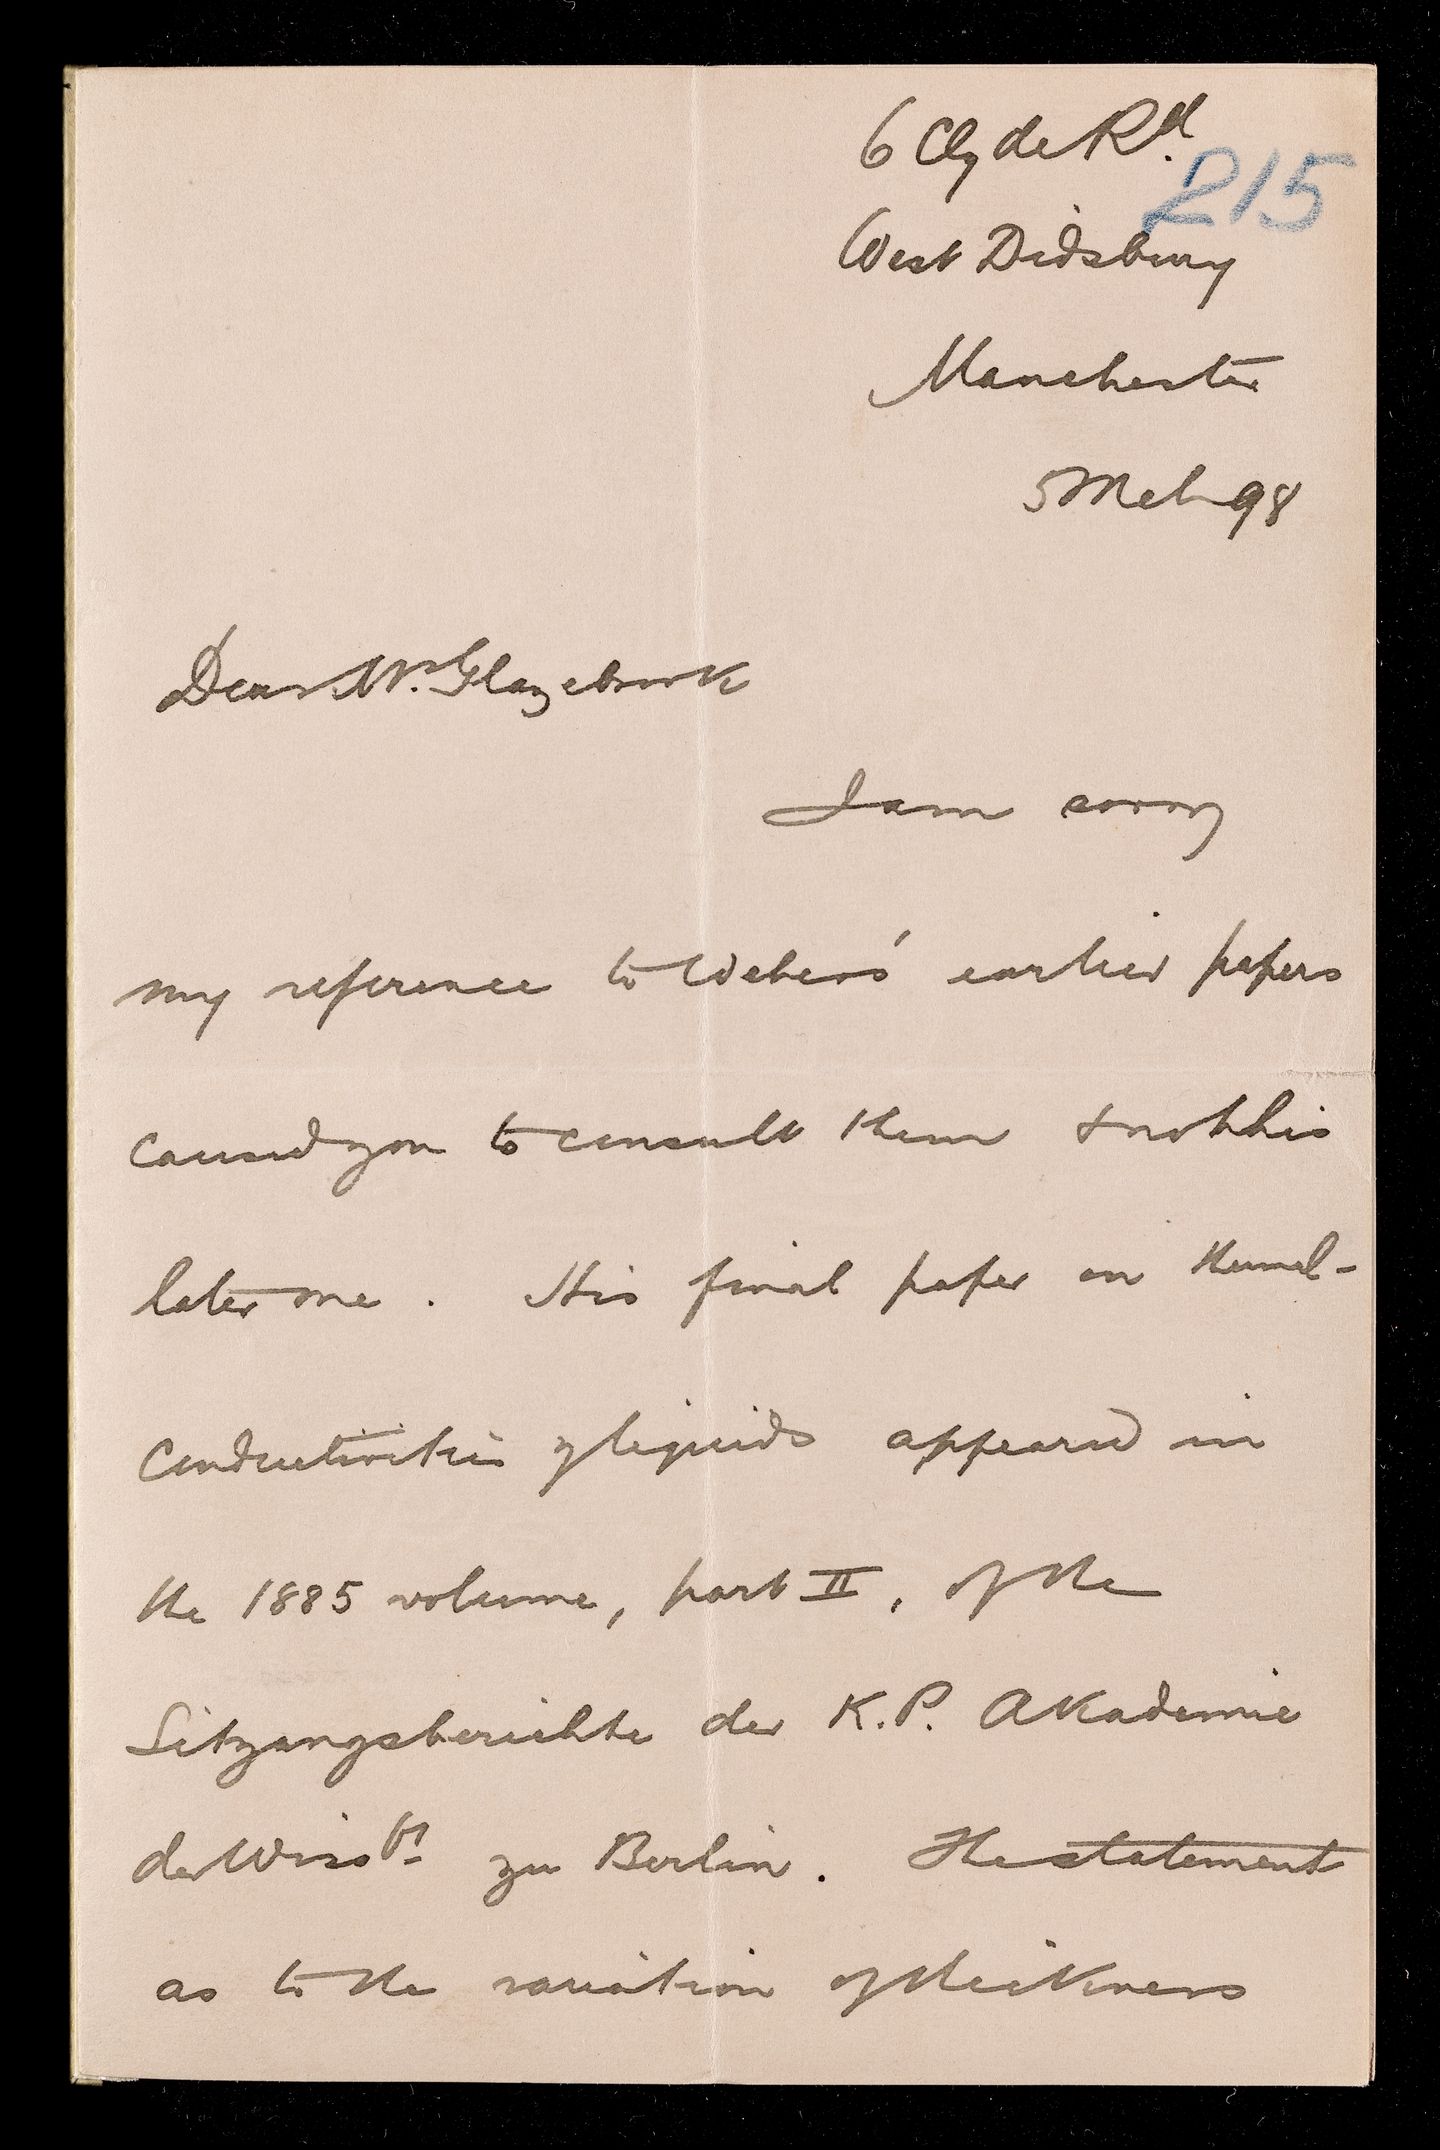 6 Clyde Rd.
215
West Didsbury
Manchester
5 Mch 98
Dear Mr. Glazebrook
I am sorry
my reference to Webers' earlier papers
caused you to consult them & not his
later one. His final paper on thermal-
conductivities of liquids appeared in
the 1885 volume, part II, of the
Sitzungsberichte der K.P. Akademie
der Wiss zu Berlin. The statement
as to the variation of thickness